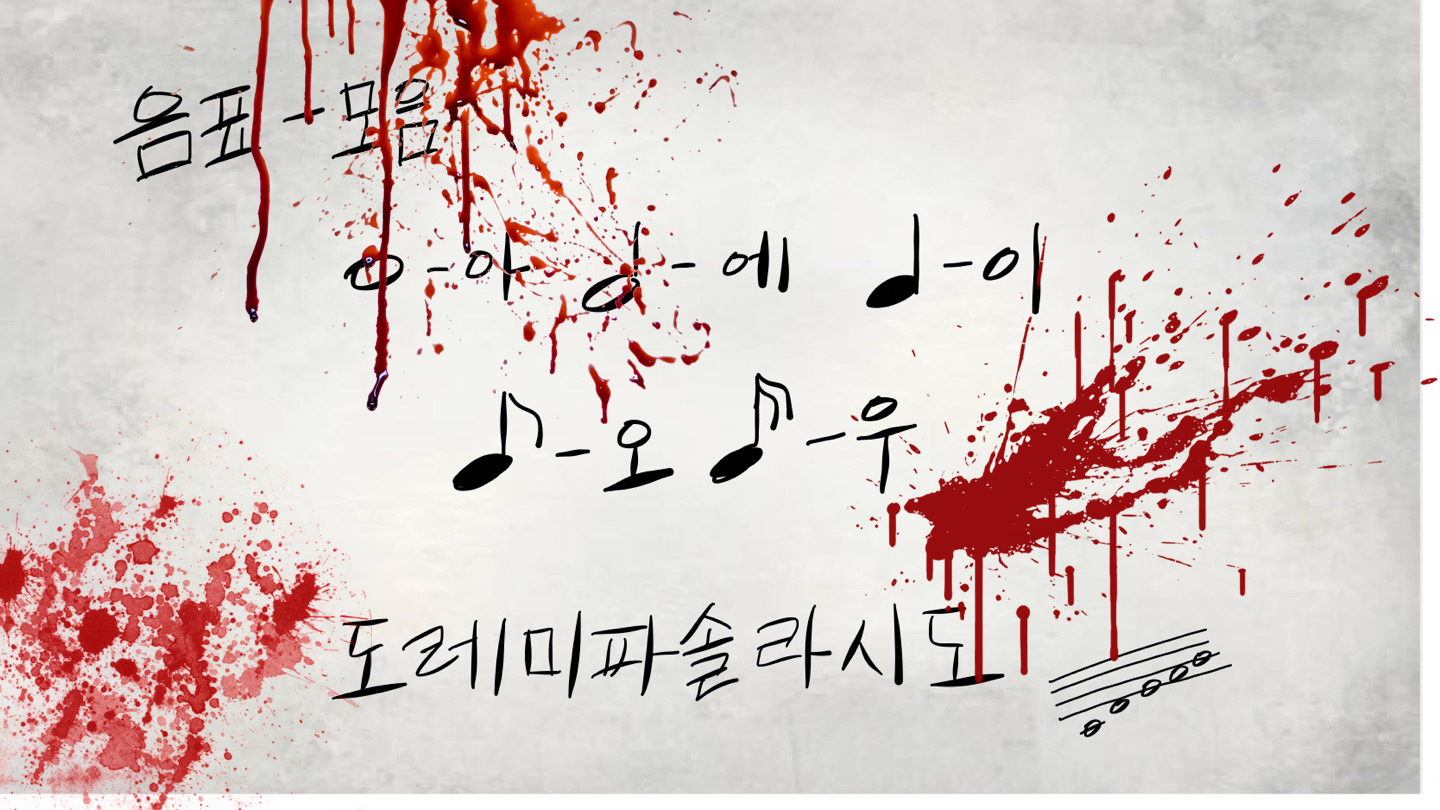 음표-모음
𝅝-아 𝅗𝅥-에 ♩-이
♪-오 𝅘𝅥𝅯-우
도레미파솔라시도